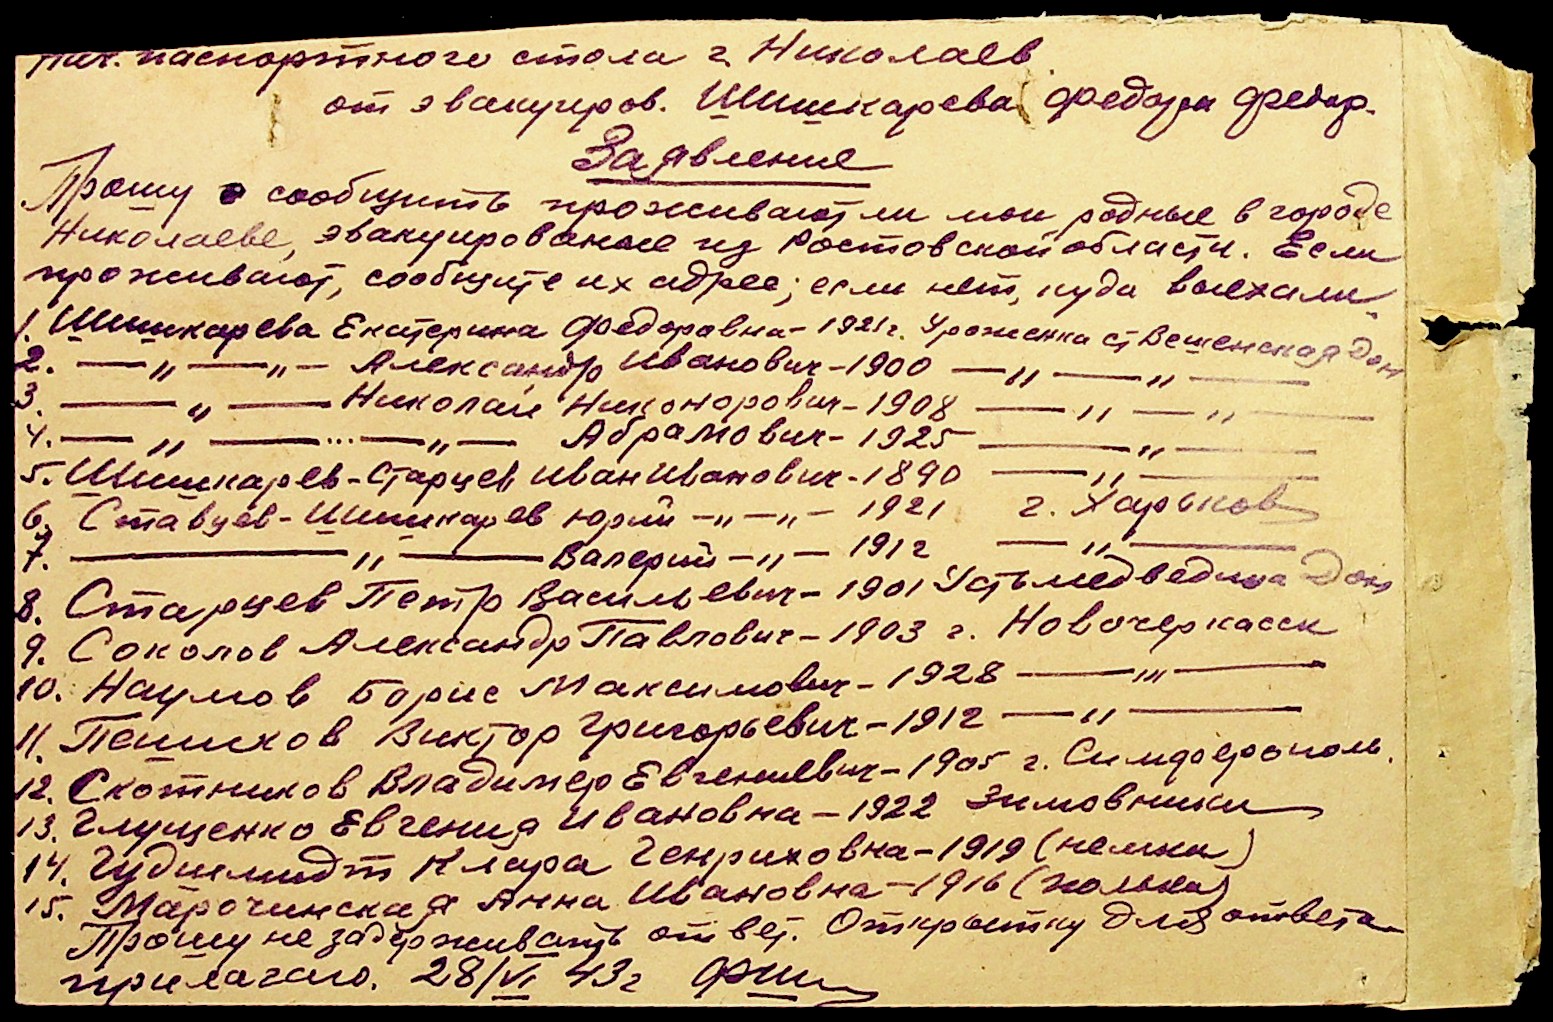 Нач. паспортного стола г. Николаев
от эвакуиров. Шишкарева Федора Федор.
Заявление
Прошу сообщить проживают ли мои родные в городе
Николаеве, эвакуированые из Ростовской области. Если
проживают, сообщите их адрес; если нет, куда выехали.
1. Шишкарева Екатерина Федоровна – 1921 г. Уроженка ст Вешенская Дон
2. — „ — „ — Александр Иванович – 1900 — „ — „ —
3. — „ — Николай Никонорович – 1908 — „ — „ —
4. — „ — ... — „ — Абрамович – 1925 — „ —
5. Шишкарев-Старцев Иван Иванович – 1890 — „ —
6. Ставцев-Шишкарев Юрий – „ – „ – 1921 г. Харьков
7. — „ — Валерий – „ – 1912 — „ —
8. Старцев Петр Васильевич – 1901 Устьмедведица Дон
9. Соколов Александр Павлович – 1903 г. Новочеркасск
10. Наумов Борис Максимович – 1928 — „, —
11. Пешихов Виктор Григорьевич – 1912 — „ —
12. Скотников Владимер Евгениевич – 1905 г. Симферополь.
13. Глущенко Евгения Ивановна – 1922 Зимовники
14. Гудшмидт Клара Генриховна – 1919 (немка)
15. Марочинская Анна Ивановна – 1916 (полька)
Прошу не задерживать ответ. Открытку для ответа
прилагаю. 28/VI 43 г ФШ